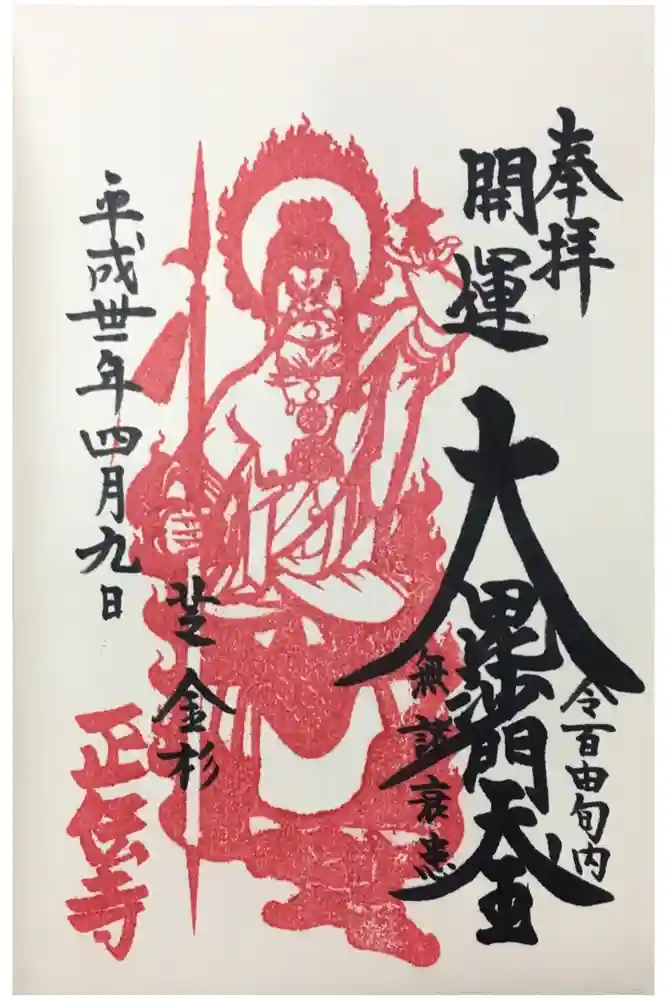 奉拝
開運
大毘沙門天王
令百由旬内
無諸衰患
芝金杉
正伝寺
平成卅一年四月九日